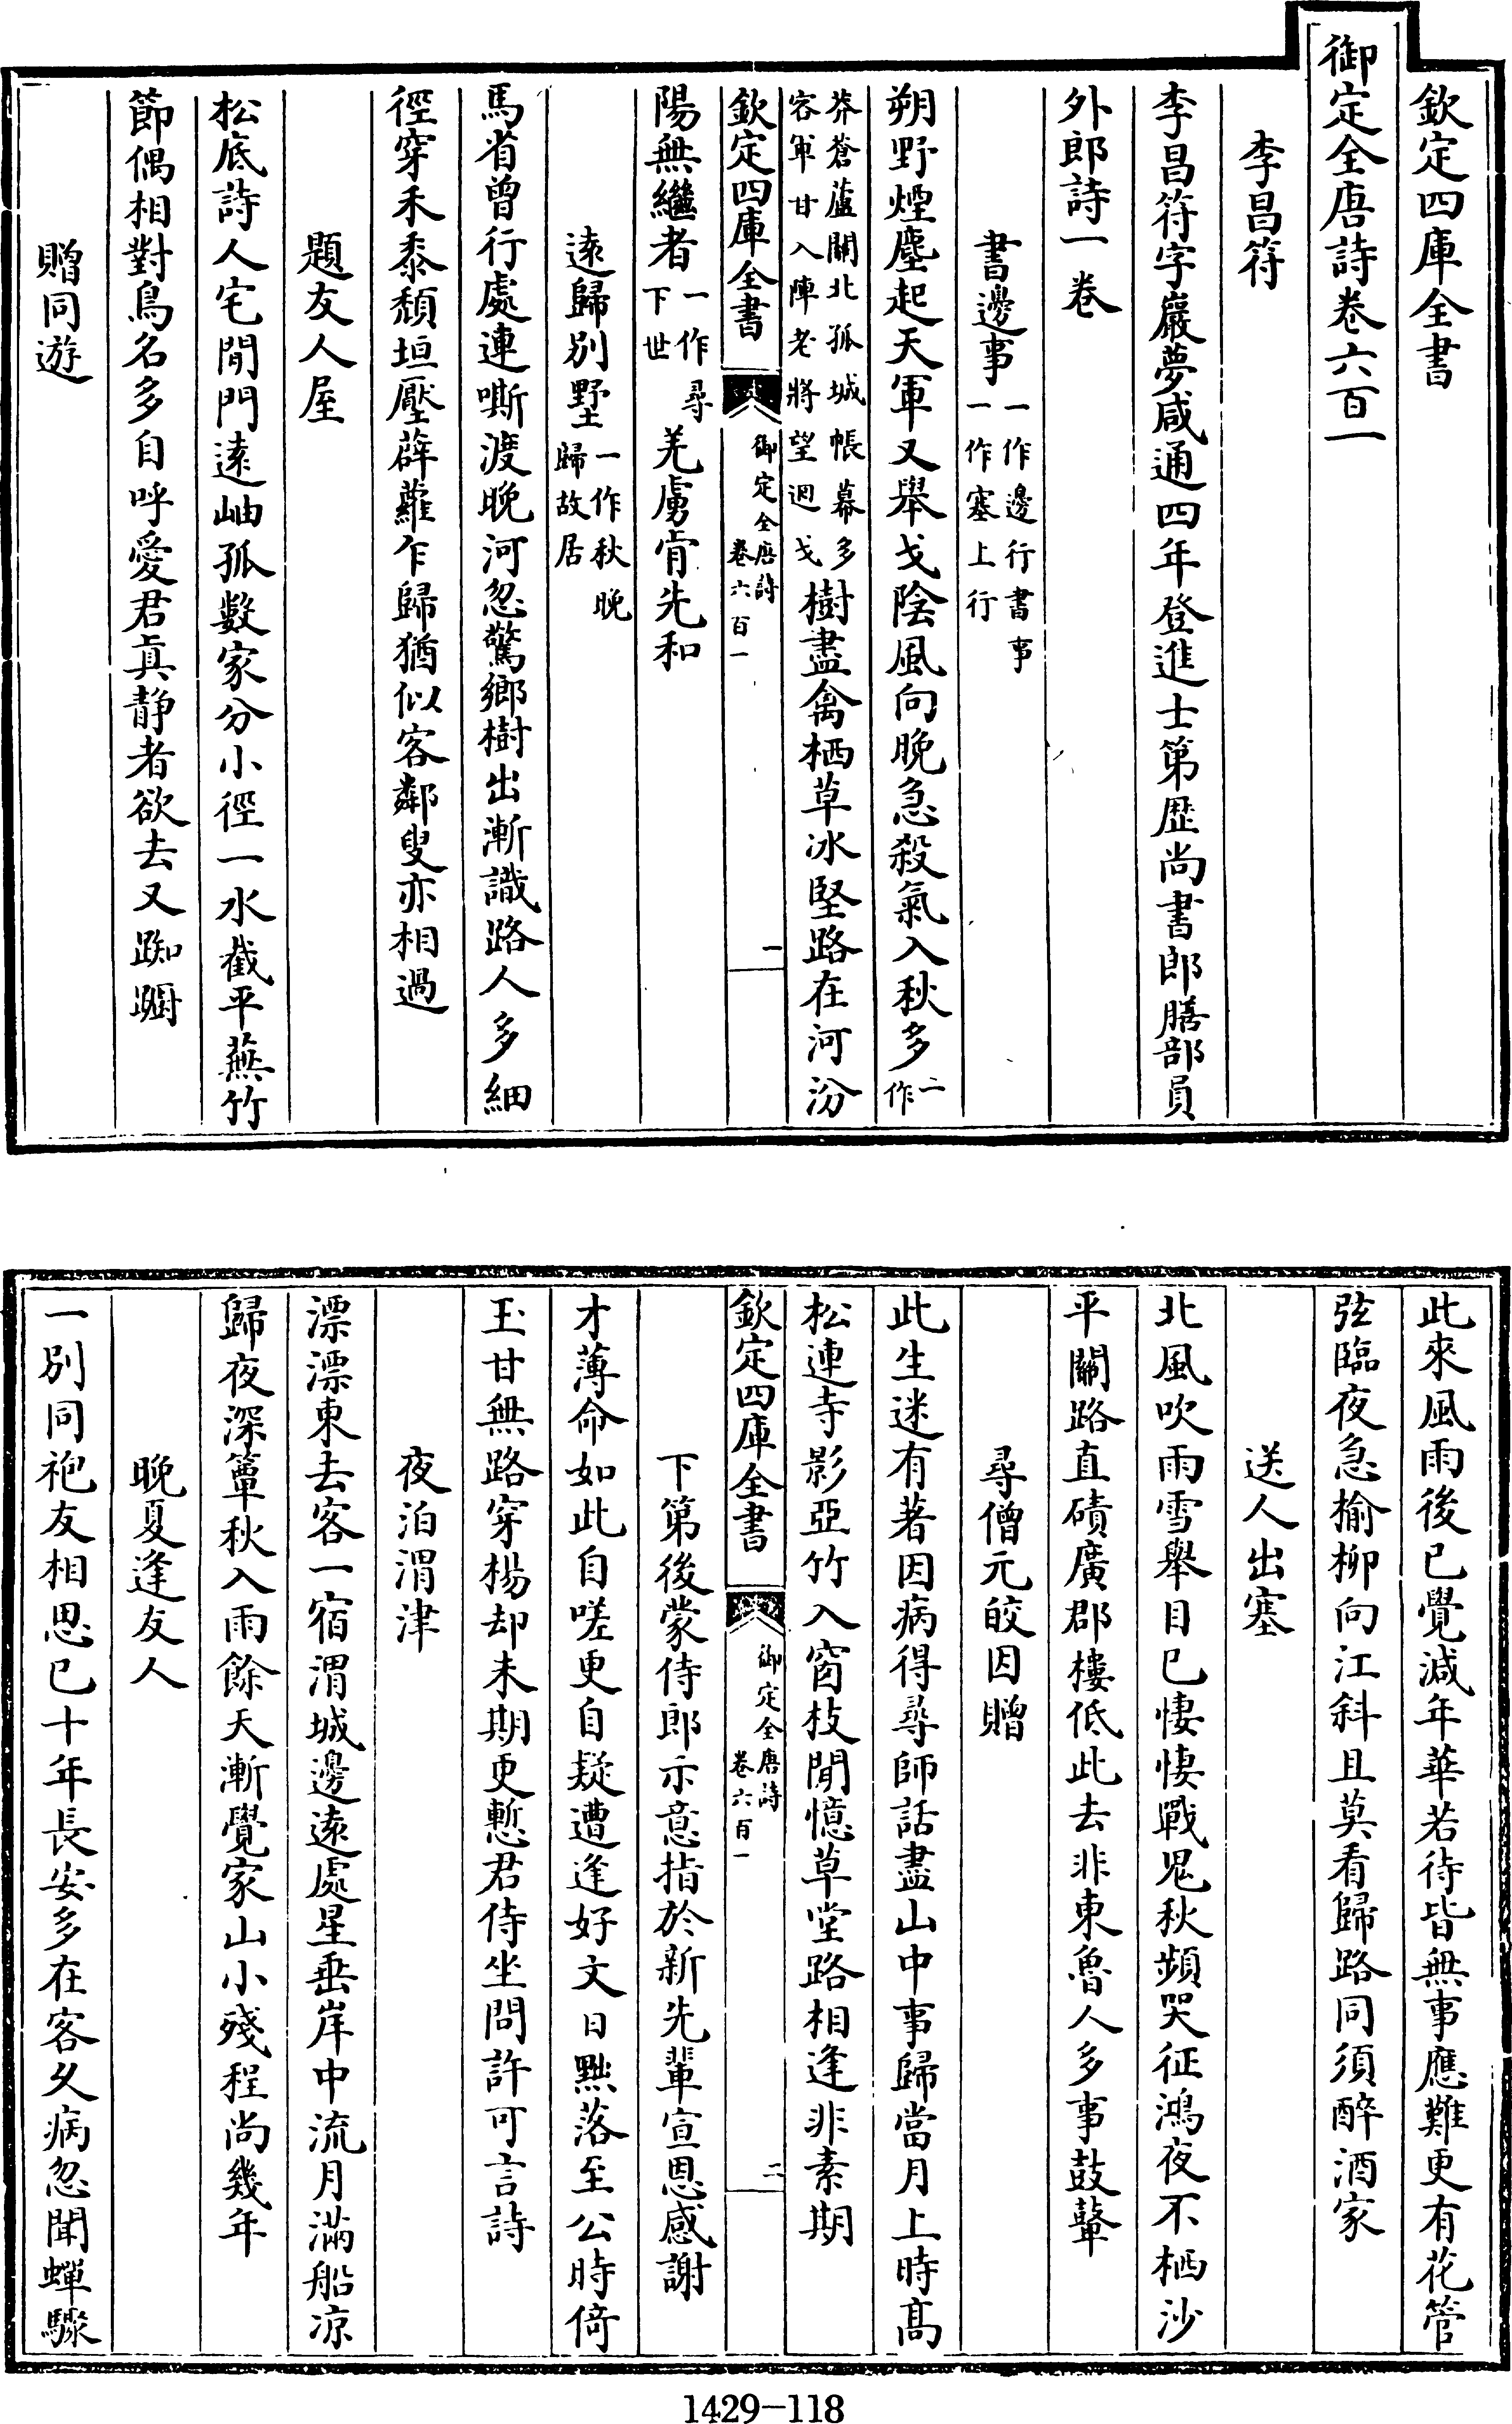 欽定四庫全書
御定全唐詩卷六百一
李昌符
李昌符字巖夢咸通四年登進士第歴尚書郎膳部員
外郎詩一卷
書邊事一作邊行書事一作塞上行
朔野煙塵起天軍又舉戈陰風向晚急殺氣入秋多一作
莽蒼蘆關北孤城帳幕多容軍甘入陣老將望迴戈樹盡禽栖草冰堅路在河汾
欽定四庫全書 御定全唐詩卷六百一 一
陽無繼者一作尋下世羌虜肯先和
遠歸別墅一作秋晚歸故居
馬省曾行處連嘶渡晚河忽驚鄉樹出漸識路人多細
徑穿禾黍頹垣壓薜蘿乍歸猶似客鄰叟亦相過
題友人屋
松底詩人宅閒門遠岫孤數家分小徑一水截平蕪竹
節偶相對鳥名多自呼愛君真静者欲去又踟躕
贈同遊
此來風雨後已覺減年華若待皆無事應難更有花管
弦臨夜急榆柳向江斜且莫看歸路同須醉酒家
送人出塞
北風吹雨雪舉目已悽悽戰鬼秋頻哭征鴻夜不栖沙
平關路直磧廣郡樓低此去非東魯人多事鼓鼙
尋僧元皎因贈
此生迷有著因病得尋師話盡山中事歸當月上時髙
松連寺影亞竹入窗枝閒憶草堂路相逢非素期
欽定四庫全書 御定全唐詩卷六百一 二
下第後蒙侍郎示意指於新先輩宣恩感謝
才薄命如此自嗟更自疑遭逢好文日黜落至公時倚
玉甘無路穿楊却未期更慙君侍坐問許可言詩
夜泊渭津
漂漂東去客一宿渭城邊遠處星垂岸中流月滿船凉
歸夜深簟秋入雨餘天漸覺家山小殘程尚幾年
晚夏逢友人
一別同袍友相思已十年長安多在客久病忽聞蟬驟
1429-118